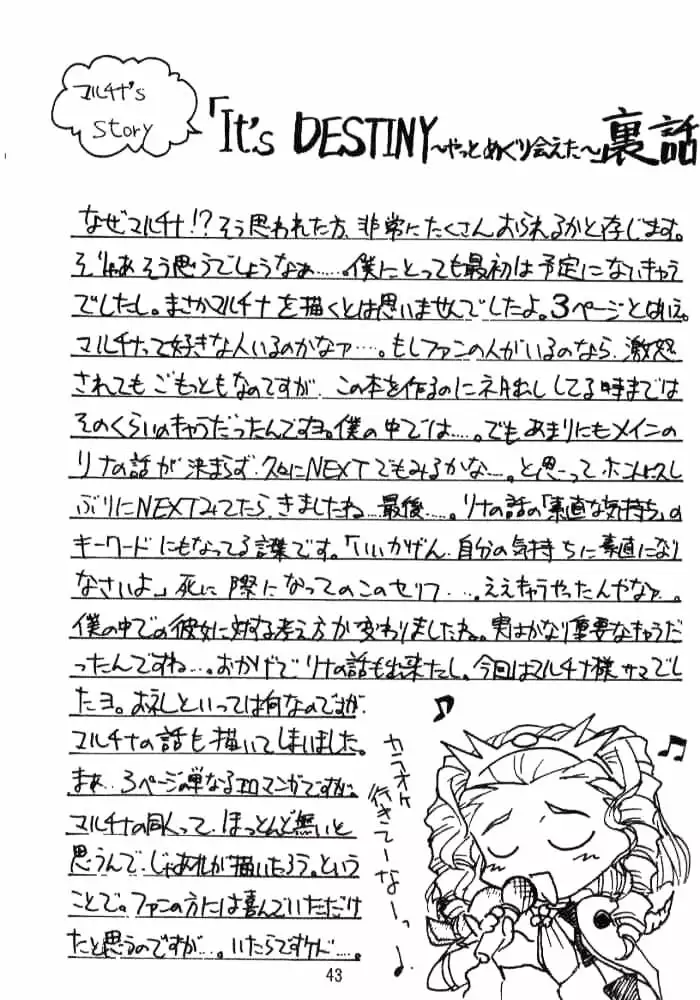 マルチナ's
Story
「It's DESTINY～やっとめぐり会えた～」裏話
なぜマルチナ!?そう思われた方、非常にたくさんおられるかと存じます。
そりゃあそう思うでしょうなぁ……。僕にとっても最初は予定にないキャラ
でしたし。まさかマルチナを描くとは思いませんでしたよ。3ページとはいえ。
マルチナって好きな人いるのかなァ……。もしファンの人がいるのなら、激怒
されてもごもっともなのですが、この本を作るのにネタ出ししてる時までは
そのくらいのキャラだったんですヨ。僕の中では……。でもあまりにもメインの
リナの話が決まらず、久々にNEXTでもみるかな……。と思ってホントにひさし
ぶりにNEXTみてたら、きましたね、最後……。リナの話の「素直な気持ち」の
キーワードにもなってる言葉です。「いいかげん、自分の気持ちに素直になり
なさいよ。」死に際になってのこのセリフ……。ええキャラやったんやなァ…。
僕の中での彼女に対する考え方が変わりましたね。実はかなり重要なキャラだ
ったんですね…。おかげでリナの話も出来たし。今回はマルチナ様サマでし
たヨ。お礼といっては何なのですが、
マルチナの話も描いてしまいました。
まぁ…3ページの単なるエロマンガですが。
マルチナの同人って、ほっとんど無いと
思うんで、じゃあオレが描いたろう。という
ことで。ファンの方には喜んでいただけ
たと思うのですが…。いたらですケド…。
カラオケ
行きてーなーっ
43